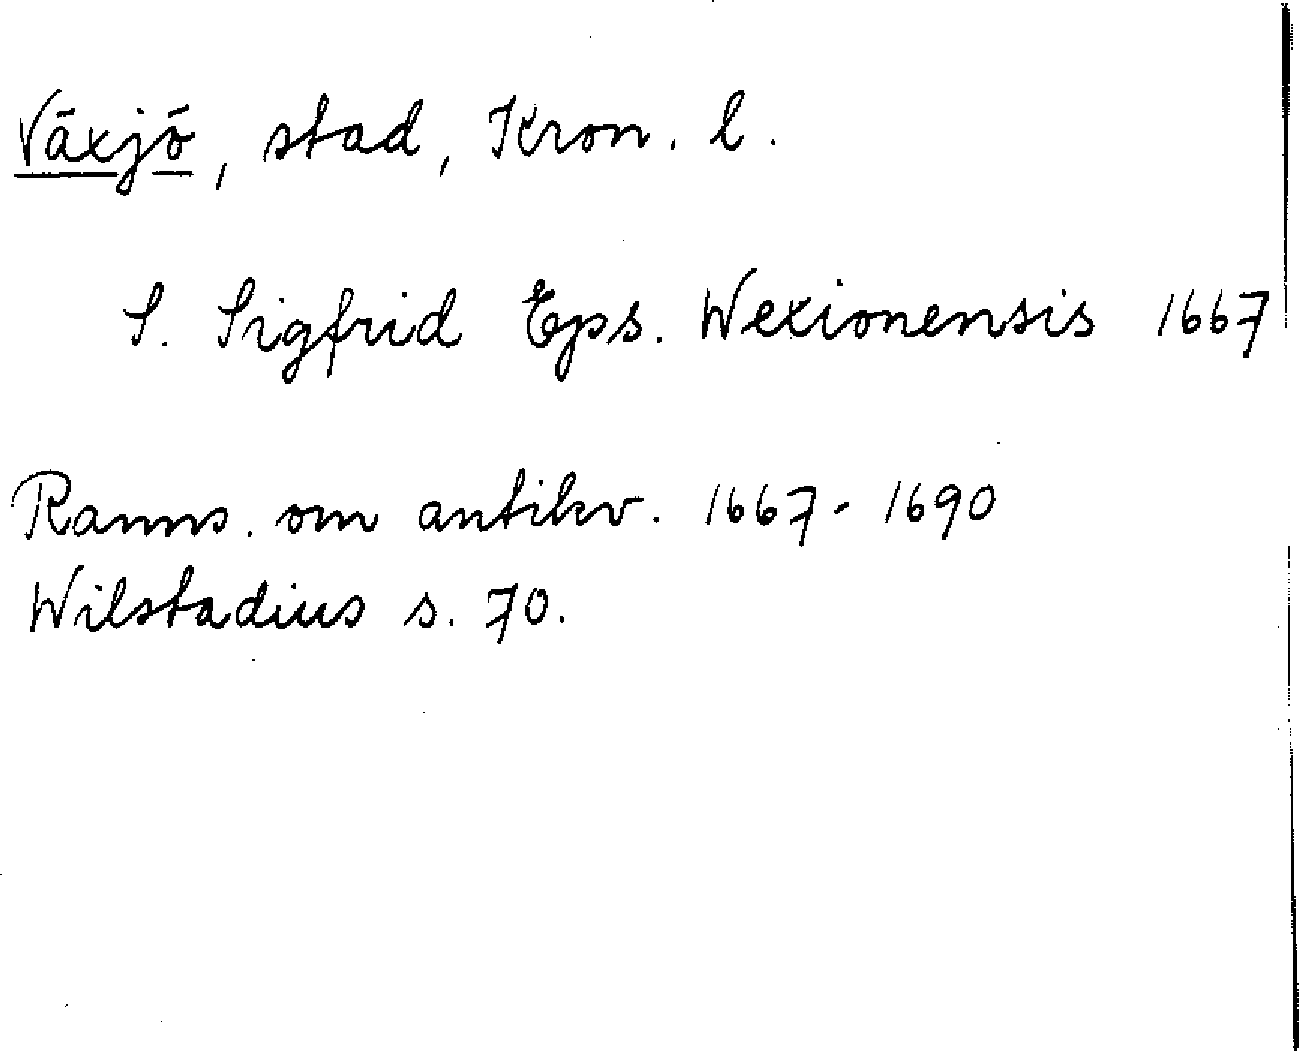 Växjö, stad, Kron. l.
S. Sigfrid Eps. Wexionensis 1667
Ranns. om antikv. 1667-1690
Wilstadius s. 70.